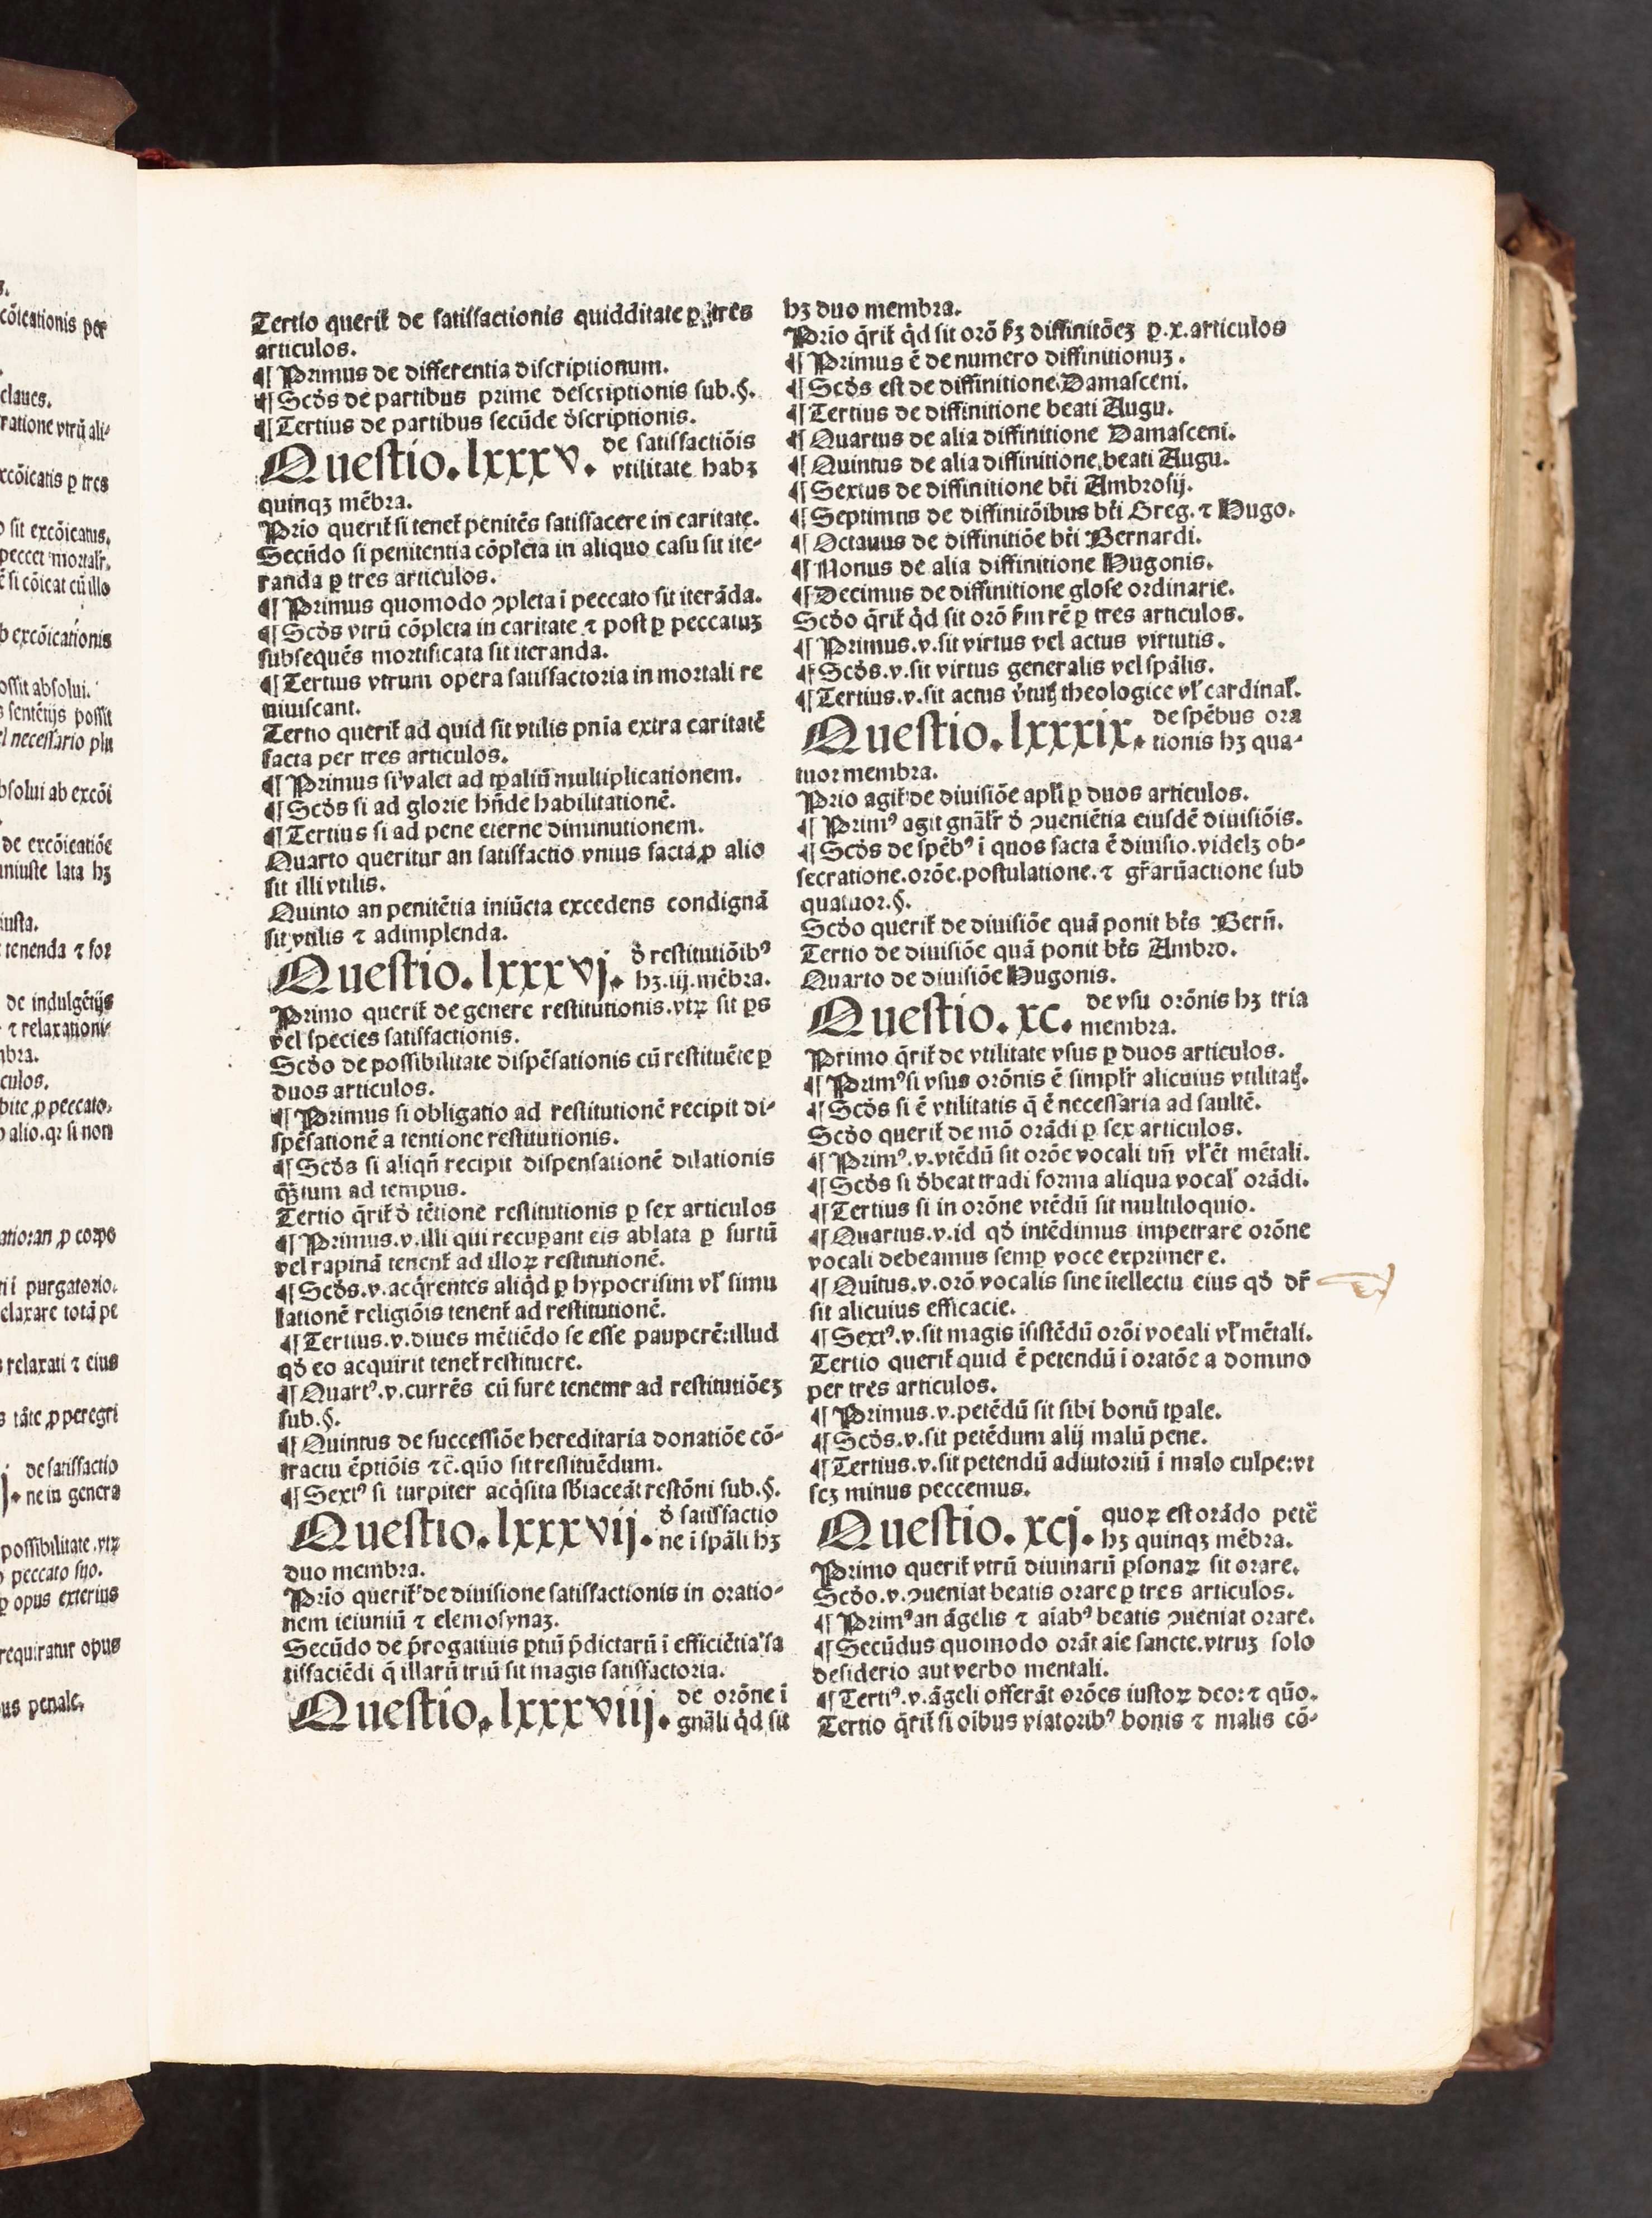 cõicationis per
claues.
ratione vtrũ ali-
xcõicatis ꝑ tres
sit excõicatus.
peccet mortalr̃.
ẽ si cõicat cũ illo
excõicationis
ossit absolui.
s sentẽtijs possit
l necessario plu
bsolui ab excõi
de excõicatiõe
iniuste lata hꝫ
iusta.
tenenda ⁊ for
de indulgẽtijs
⁊ relaxationi-
bra.
culos.
bite ꝓ peccato.
alio. qꝛ si non
atio: an ꝓ corpo
i purgatorio.
elaxare totã pe
relaxati ⁊ eius
tãte ꝓ peregri
de satisfactio
ne in genera
possibilitate. vtꝝ
peccato suo.
ꝑ opus exterius
requiratur opus
us penale.
Tertio querit̃ de satisfactionis quidditate ꝑ tres
articulos.
¶ Primus de differentia discriptionum.
¶ Scd̕s de partibus prime descriptionis sub.§.
¶ Tertius de partibus secũde d̕scriptionis.
Questio. lxxxv. de satisfactiõis
vtilitate habꝫ
quinqꝫ mẽbra.
Prio querit̃ si tenet̃ penitẽs satisfacere in caritate.
Secũdo si penitentia cõpleta in aliquo casu sit ite-
randa ꝑ tres articulos.
¶ Primus quomodo ɔpleta ĩ peccato sit iterãda.
¶ Scd̕s vtrũ cõpleta in caritate ⁊ post ꝑ peccatuꝫ
subsequẽs mortificata sit iteranda.
¶ Tertius vtrum opera satisfactoria in mortali re
uiuiscant.
Tertio querit̃ ad quid sit vtilis pnĩa extra caritatẽ
facta per tres articulos.
¶ Primus si valet ad tꝑaliũ multiplicationem.
¶ Scd̕s si ad glorie hñde habilitationẽ.
¶ Tertius si ad pene eterne diminutionem.
Quarto queritur an satisfactio vnius facta ꝓ alio
sit illi vtilis.
Quinto an penitẽtia iniũcta excedens condignã
sit vtilis ⁊ adimplenda.
Questio. lxxxvj. d̕ restitutiõibꝰ
hꝫ. iij. mẽbra.
Primo querit̃ de genere restitutionis. vtꝝ sit ꝑs
vel species satisfactionis.
Scd̕o de possibilitate dispẽsationis cũ restituẽte ꝑ
duos articulos.
¶ Primus si obligatio ad restitutionẽ recipit di-
spẽsationẽ a tentione restitutionis.
¶ Scd̕s si aliqñ recipit dispensationẽ dilationis
q̃ꝫtum ad tempus.
Tertio q̃rit̃ d̕ tẽtione restitutionis ꝑ sex articulos
¶ Primus. v. illi qui recuꝑant eis ablata ꝑ furtũ
vel rapinã tenent̃ ad illoꝝ restitutionẽ.
¶ Scd̕s. v. acq̃rentes aliq̕d ꝑ hypocrisim vl̕ simu
lationẽ religiõis tenent̃ ad restitutionẽ.
¶ Tertius. v. diues mẽtiẽdo se esse pauperẽ: illud
qd̕ eo acquirit tenet̃ restituere.
¶ Quartꝰ. v. currẽs cũ fure tenetur ad restitutiõeꝫ
sub.§.
¶ Quintus de successiõe hereditaria donatiõe cõ-
tractu ẽptiõis ⁊c̃. quõ sit restituẽdum.
¶ Sextꝰ si turpiter acq̕sita sb̕iaceãt restõni sub.§.
Questio. lxxxvij. d̕ satisfactio
ne ĩ spãli hꝫ
duo membra.
Prio querit̃ de diuisione satisfactionis in oratio-
nem ieiuniũ ⁊ elemosynaꝫ.
Secũdo de p̃rogatiuis ꝑtiũ p̃dictarũ ĩ efficiẽtia sa
tisfaciẽdi q̃ illarũ triũ sit magis satisfactoria.
Questio. lxxxviij. de orõne ĩ
gnãli q̕d sit
hꝫ duo membra.
Prio q̃rit̃ q̕d sit orõ ẜꝫ diffinitõeꝫ ꝑ. x. articulos
¶ Primus ẽ de numero diffinitionuꝫ.
¶ Scd̕s est de diffinitione Damasceni.
¶ Tertius de diffinitione beati Augu.
¶ Quartus de alia diffinitione Damasceni.
¶ Quintus de alia diffinitione beati Augu.
¶ Sextus de diffinitione bt̃i Ambrosij.
¶ Septimus de diffinitõibus bt̃i Greg. ⁊ Hugo.
¶ Octauus de diffinitiõe bt̃i Bernardi.
¶ Nonus de alia diffinitione Hugonis.
¶ Decimus de diffinitione glose ordinarie.
Scd̕o q̃rit̃ q̕d sit orõ ẜm rẽ ꝑ tres articulos.
¶ Primus. v. sit virtus vel actus virtutis.
¶ Scd̕s. v. sit virtus generalis vel spãlis.
¶ Tertius. v. sit actus v̕tutꝭ theologice vl̕ cardinal̕.
Questio. lxxxix. de spẽbus ora
tionis hꝫ qua-
tuor membra.
Prio agit̃ de diuisiõe apl̕i ꝑ duos articulos.
¶ Primꝰ agit gnãlr̃ d̕ ɔueniẽtia eiusdẽ diuisiõis.
¶ Scd̕s de spẽbꝰ ĩ quos facta ẽ diuisio. videlꝫ ob-
secratione. orõe. postulatione. ⁊ gr̃arũactione sub
quatuor.§.
Scd̕o querit̃ de diuisiõe quã ponit bt̃s Berñ.
Tertio de diuisiõe quã ponit bt̃s Ambro.
Quarto de diuisiõe Hugonis.
Questio. xc. de vsu orõnis hꝫ tria
membra.
Primo q̃rit̃ de vtilitate vsus ꝑ duos articulos.
¶ Primꝰ si vsus orõnis ẽ simplr̃ alicuius vtilitatꝭ.
¶ Scd̕s si ẽ vtilitatis q̃ ẽ necessaria ad saultẽ.
Scd̕o querit̃ de mõ orãdi ꝑ sex articulos.
¶ Primꝰ. v. vtẽdũ sit orõe vocali tm̃ vl̕ ẽt mẽtali.
¶ Scd̕s si d̕beat tradi forma aliqua vocal̕ orãdi.
¶ Tertius si in orõne vtẽdũ sit multiloquio.
¶ Quartus. v. id qd̕ intẽdimus impetrare orõne
vocali debeamus semꝑ voce exprimere.
¶ Quĩtus. v. orõ vocalis sine ĩtellectu eius qd̕ dr̃
sit alicuius efficacie.
¶ Sextꝰ. v. sit magis ĩsistẽdũ orõi vocali vl̕ mẽtali.
Tertio querit̃ quid ẽ petendũ ĩ oratõe a domino
per tres articulos.
¶ Primus. v. petẽdũ sit sibi bonũ tꝑale.
¶ Scd̕s. v. sit petẽdum alij malũ pene.
¶ Tertius. v. sit petendũ adiutoriũ ĩ malo culpe: vt
scꝫ minus peccemus.
Questio. xcj. quoꝝ est orãdo petẽ
hꝫ quinqꝫ mẽbra.
Primo querit̃ vtrũ diuinarũ ꝑsonaꝝ sit orare.
Scd̕o. v. ɔueniat beatis orare ꝑ tres articulos.
¶ Primꝰ an ãgelis ⁊ aĩabꝰ beatis ɔueniat orare.
¶ Secũdus quomodo orãt aĩe sancte. vtruꝫ solo
desiderio aut verbo mentali.
¶ Tertiꝰ. v. ãgeli offerãt orões iustoꝝ deo: ⁊ quõ.
Tertio q̃rit̃ si oĩbus viatoribꝰ bonis ⁊ malis cõ-